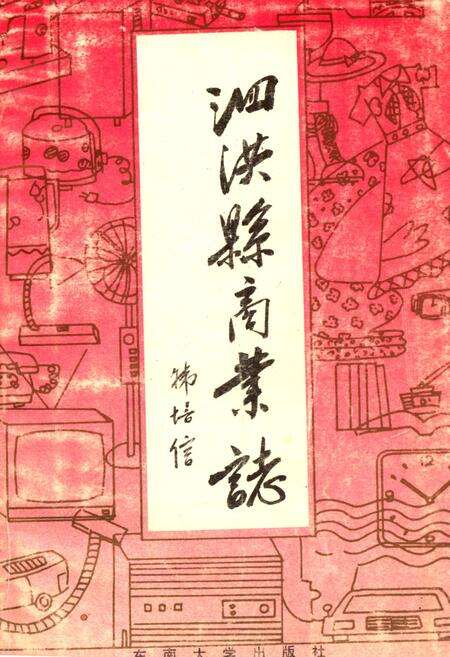 泗洪縣商業誌
韩培信
东南大学出版社